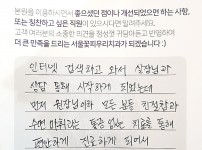 본원을 이용하시면서 좋으셨던 점이나 개선되었으면 하는 사항,
또는 칭찬하고 싶은 직원이 있으시다면 말씀해주세요.
고객 여러분의 소중한 의견을 정성껏 귀담아듣고 반영하여
더 큰 만족을 드리는 서울꽃피우리치과가 되겠습니다 :)
인터넷 검색하고 와서 실장님과
상담 통해 시작하게 되었는데
먼저 원장님이하 모든 분들 친절함과
수면 마취라는 통증 없는 치료를 통해
편안하게 진료하게 되어서